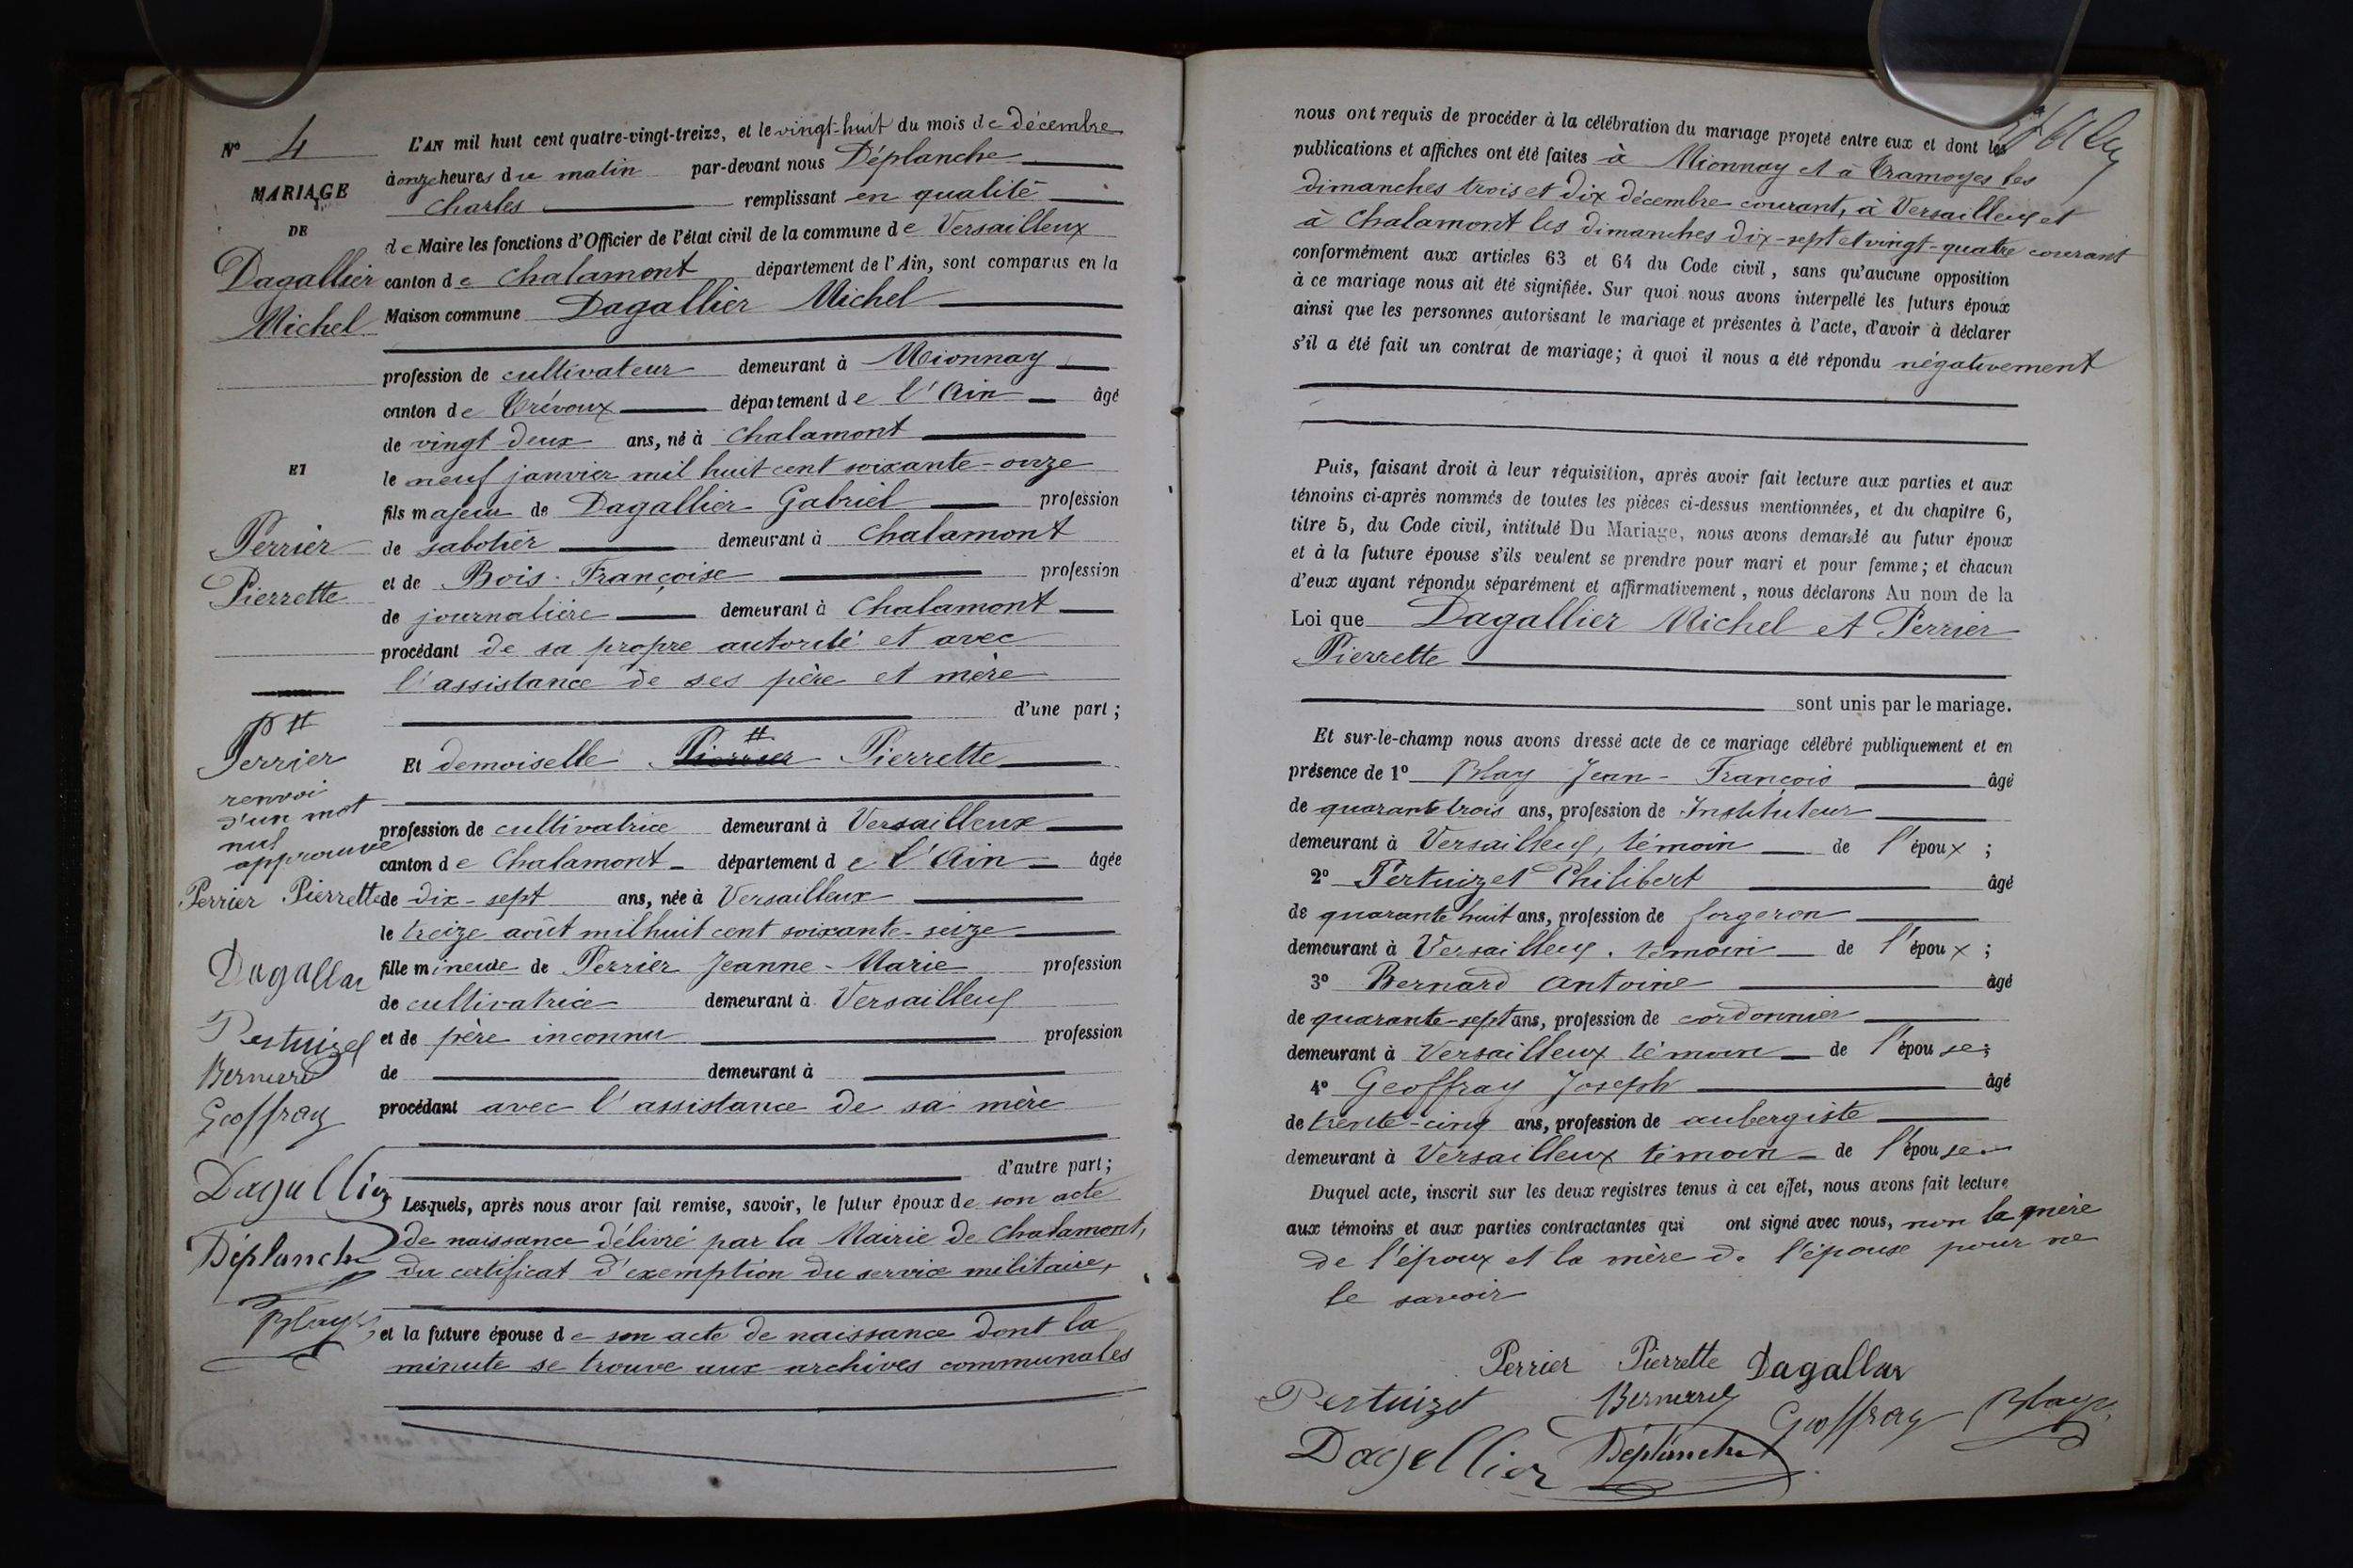 N° 4
MARIAGE
DE
Dagallier
Michel
ET
Perrier
Pierrette
Perrier
renvoi
d'un mot
nul
approuvé
Perrier Pierrette
Dagallier
Pertuizet
Bernard
Geoffray
Dagallier
Déplanche
Blay
L'AN mil huit cent quatre-vingt-treize, et le vingt-huit du mois de décembre
à onze heures du matin par-devant nous Déplanche
Charles remplissant en qualité
de Maire les fonctions d'Officier de l'état civil de la commune de Versailleux
canton de Chalamont département de l'Ain, sont comparus en la
Maison commune Dagallier Michel
profession de cultivateur demeurant à Mionnay
canton de Trévoux département de l'Ain âgé
de vingt deux ans, né à Chalamont
le neuf janvier mil huit cent soixante-onze
fils majeur de Dagallier Gabriel profession
de sabotier demeurant à Chalamont
et de Bois Françoise profession
de journalière demeurant à Chalamont
procédant de sa propre autorité et avec
l'assistance de ses père et mère
d'une part ;
Et demoiselle Pierrette
profession de cultivatrice demeurant à Versailleux
canton de Chalamont département de l'Ain âgée
de dix-sept ans, née à Versailleux
le treize août mil huit cent soixante-seize
fille mineure de Perrier Jeanne-Marie profession
de cultivatrice demeurant à Versailleux
et de père inconnu profession
de demeurant à
procédant avec l'assistance de sa mère
d'autre part ;
Lesquels, après nous avoir fait remise, savoir, le futur époux de son acte
de naissance délivré par la Mairie de Chalamont,
du certificat d'exemption du service militaire,
et la future épouse de son acte de naissance dont la
minute se trouve aux archives communales
nous ont requis de procéder à la célébration du mariage projeté entre eux et dont les
publications et affiches ont été faites à Mionnay et à Tramoyes les
dimanches trois et dix décembre courant, à Versailleux et
à Chalamont les dimanches dix-sept et vingt-quatre courant
conformément aux articles 63 et 64 du Code civil, sans qu'aucune opposition
à ce mariage nous ait été signifiée. Sur quoi nous avons interpellé les futurs époux
ainsi que les personnes autorisant le mariage et présentes à l'acte, d'avoir à déclarer
s'il a été fait un contrat de mariage ; à quoi il nous a été répondu négativement
Puis, faisant droit à leur réquisition, après avoir fait lecture aux parties et aux
témoins ci-après nommés de toutes les pièces ci-dessus mentionnées, et du chapitre 6,
titre 5, du Code civil, intitulé Du Mariage, nous avons demandé au futur époux
et à la future épouse s'ils veulent se prendre pour mari et pour femme ; et chacun
d'eux ayant répondu séparément et affirmativement, nous déclarons Au nom de la
Loi que Dagallier Michel et Perrier
Pierrette
sont unis par le mariage.
Et sur-le-champ nous avons dressé acte de ce mariage célébré publiquement et en
présence de 1° Blay Jean-François âgé
de quarante trois ans, profession de Instituteur
demeurant à Versailleux, témoin de l'époux ;
2° Pertuizet Philibert âgé
de quarante huit ans, profession de forgeron
demeurant à Versailleux. témoin de l'époux ;
3° Bernard Antoine âgé
de quarante-sept ans, profession de cordonnier
demeurant à Versailleux témoin de l'épouse ;
4° Geoffray Joseph âgé
de trente-cinq ans, profession de aubergiste
demeurant à Versailleux témoin de l'épouse.
Duquel acte, inscrit sur les deux registres tenus à cet effet, nous avons fait lecture
aux témoins et aux parties contractantes qui ont signé avec nous, non la mère
de l'époux et la mère de l'épouse pour ne
le savoir
Perrier Pierrette Dagallier
Pertuizet Bernard Geoffray Blay
Dagallier Déplanche